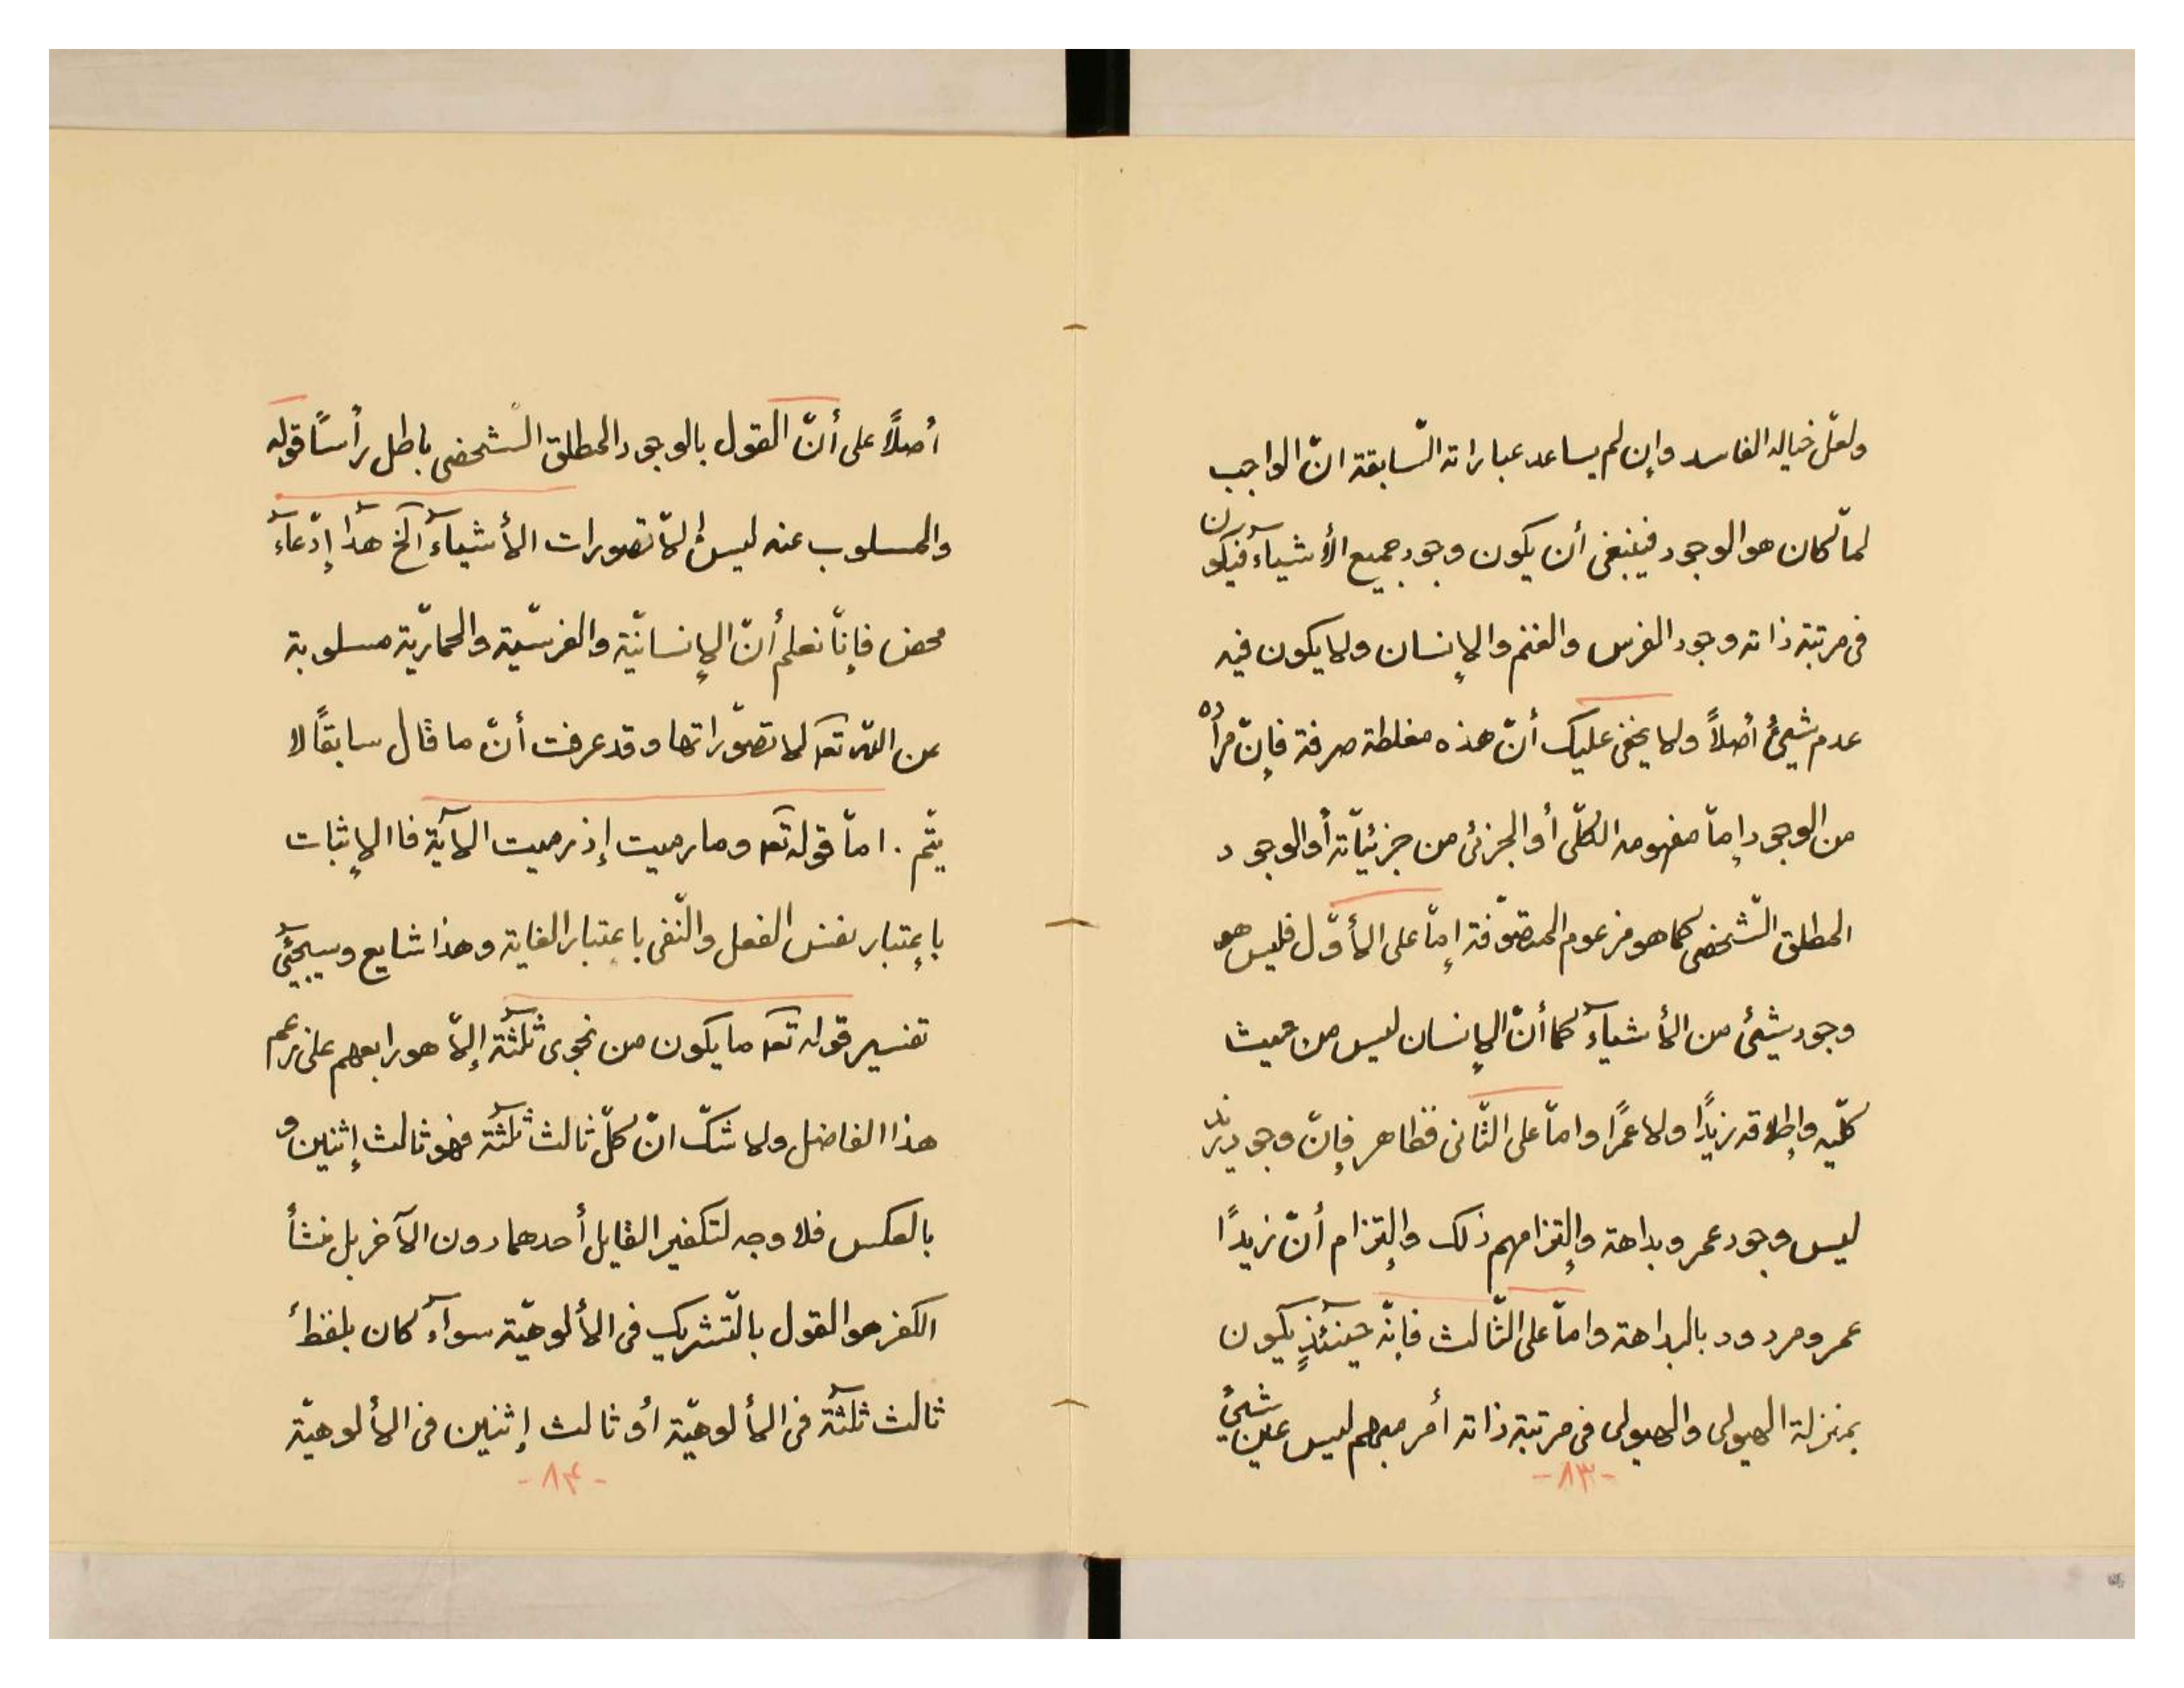 ولعلّ خياله الفاسد وإن لم يساعد عباراته السّابقة انّ الواجب
لمّا كان هو الوجود فينبغى أن يكون وجود جميع الأشيآء فيكون
فى مرتبة ذاته وجود الفرس والغنم والإنسان ولا يكون فيه
عدم شيئ أصلاً ولا يخفى عليك أنّ هذه مغلطة صرفة فإنّ مراده
من الوجود إمّا مفهومه الكلّى أو الجزئى من جزئيّاته أو الوجود
المطلق الشّخصى كما هو مزعوم المتصوّفة إمّا على الأوّل فليس هو
وجود شيئ من الأشيآء كما أنّ الإنسان ليس من حيث
كلّيه وإطلاقه زيدًا ولا عمرًا وامّا على الثّانى فظاهر فإنّ وجود زيد
ليس وجود عمرو بداهة وإلتزامهم ذلك وإلتزام أنّ زيدًا
عمرو مردود بالبداهة وامّا على الثّالث فإنّه حينئذٍ يكون
بمنزلة الهيولى والهيولى فى مرتبة ذاته أمر مبهم ليس عين شيئ
-۸۳-
أصلاً على أنّ القول بالوجود المطلق الشخصى باطل رأسًا قوله
والمسلوب عنه ليس إلاّ تصورات الأشيآء آلخ هذا إدّعآء
محض فإنّا نعلم أنّ الإنسانيّة والفرسيّة والحماريّة مسلوبة
عن اللّه تعـ لا تصوّراتها وقد عرفت أنّ ما قال سابقًا لا
يتّم . امّا قوله تعـ وما رميت إذ رميت الآية فا الإثبات
بإعتبار نفس الفعل والنّفى بإعتبار الغاية وهذا شايع وسيجيئ
تفسير قوله تعـ ما يكون من نجوى ثلثة إلاّ هو رابعهم على زعم
هذا الفاضل ولا شكّ انّ كلّ ثالث ثلثة فهو ثالث إثنين و
بالعكس فلا وجه لتكفير القايل أحدهما دون الآخر بل منشأ
الكفر هو القول بالتّشريك فى الألوهيّة سوآء كان بلفظ
ثالث ثلثة فى الألوهيّة أو ثالث إثنين فى الألوهيّة
-۸۴-